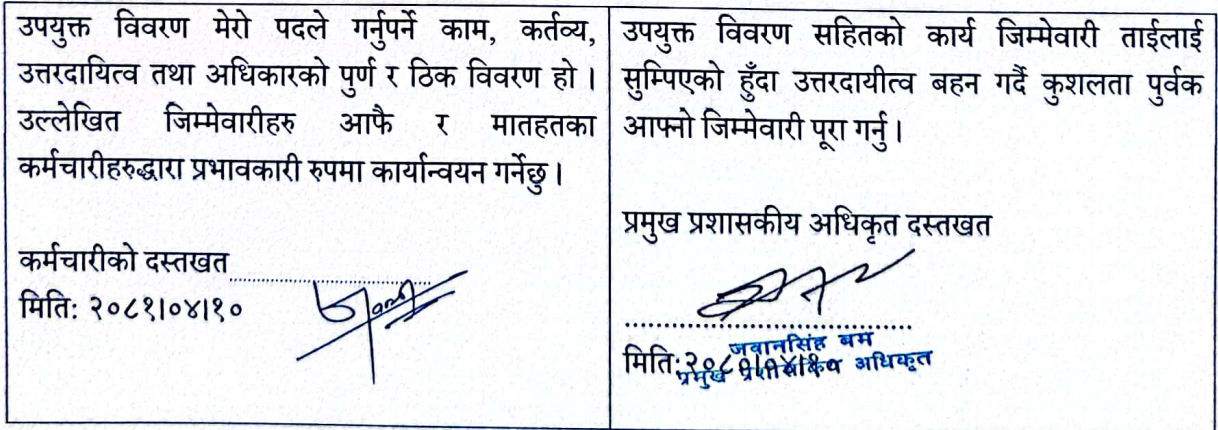 उपयुक्त विवरण मेरो पदले गर्नुपर्ने काम, कर्तव्य,
उत्तरदायित्व तथा अधिकारको पुर्ण र ठिक विवरण हो ।
उल्लेखित जिम्मेवारीहरु आफै र मातहतका
कर्मचारीहरुद्धारा प्रभावकारी रुपमा कार्यान्वयन गर्नेछु ।
कर्मचारीको दस्तखत
मितिः २०८१।०४।१०
उपयुक्त विवरण सहितको कार्य जिम्मेवारी ताईलाई
सुम्पिएको हुँदा उत्तरदायीत्व बहन गर्दै कुशलता पुर्वक
आफ्नो जिम्मेवारी पूरा गर्नु ।
प्रमुख प्रशासकीय अधिकृत दस्तखत
जवानसिंह बम
मितिः
प्रमुख प्रशासकिय अधिकृत